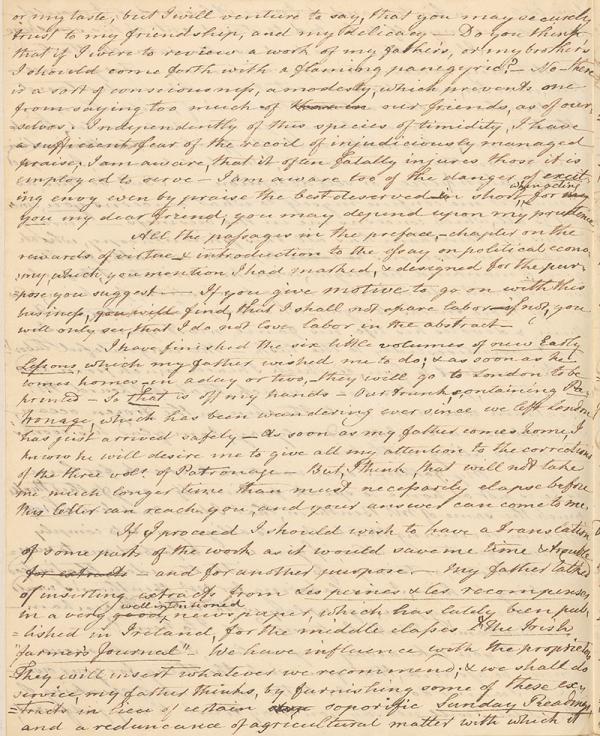 or my taste; but I will venture to say, that you may securely
trust to my friendship, and my delicacy — Do you think
that if I were to review a work of my fathers, or my brothers
I should come forth with a flaming panegyric? — No — there
is a sort of consciousness, a modesty, which prevents one
from saying too much of our friends, as of our
=selves. Independently of this species of timidity, I have
a sufficient fear of the recoil of injudiciously managed
praise; I am aware, that it often fatally injures those it is
employed to serve — I am aware too of the danger of excit
ing envy even by praise the best deserved — in short for
you my dear friend, you may depend upon my prudence
All the passages in the preface — chapter on the
rewards of virtue & introduction to the essay on political econo
my, which you mention I had marked, & designed for the pur=
pose you suggest — If you give motive to go on with this
business, you will find, that I shall not spare labor — if not, you
will only see, that I do not love labor in the abstract —
I have finished the six little volumes of new Early
Lessons, which my father wished me to do; & as soon as he
comes home, in a day or two, they will go to London to be
printed — So that is off my hands — Our trunk, containing Pa=
tronage, which has been wandering ever since we left London
has just arrived safely — As soon as my father comes home, I
know he will desire me to give all my attention to the corrections
of the three vols. of Patronage — But, I think, that will not take
me much longer time than must necessarily elapse before
this letter can reach you, and your answer can come to me.
If I proceed I should wish to have a translation
of some parts of the work as it would save me time & trouble
for extracts — and for another purpose — My father talks
of inserting extracts from Les peines & les recompenses
in a very good, well intentioned newspaper, which has lately been pub
=lished in Ireland, for the middle classes & the Irish
"farmer's Journal" — We have influence with the proprietors
They will insert whatever we recommend; & we shall do
service, my father thinks, by furnishing some of these ex
=tracts in lieu of certain soporific Sunday Readings
and a redundance of agricultural matter with which it